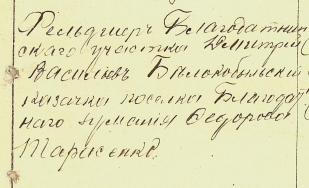 Фельдшеръ Благодатнин
скаго участка Димитрій
Василіевъ Балокобыльскій
казачка поселка Благодат
наго Евмалія Ѳедорова
Тарасенко.